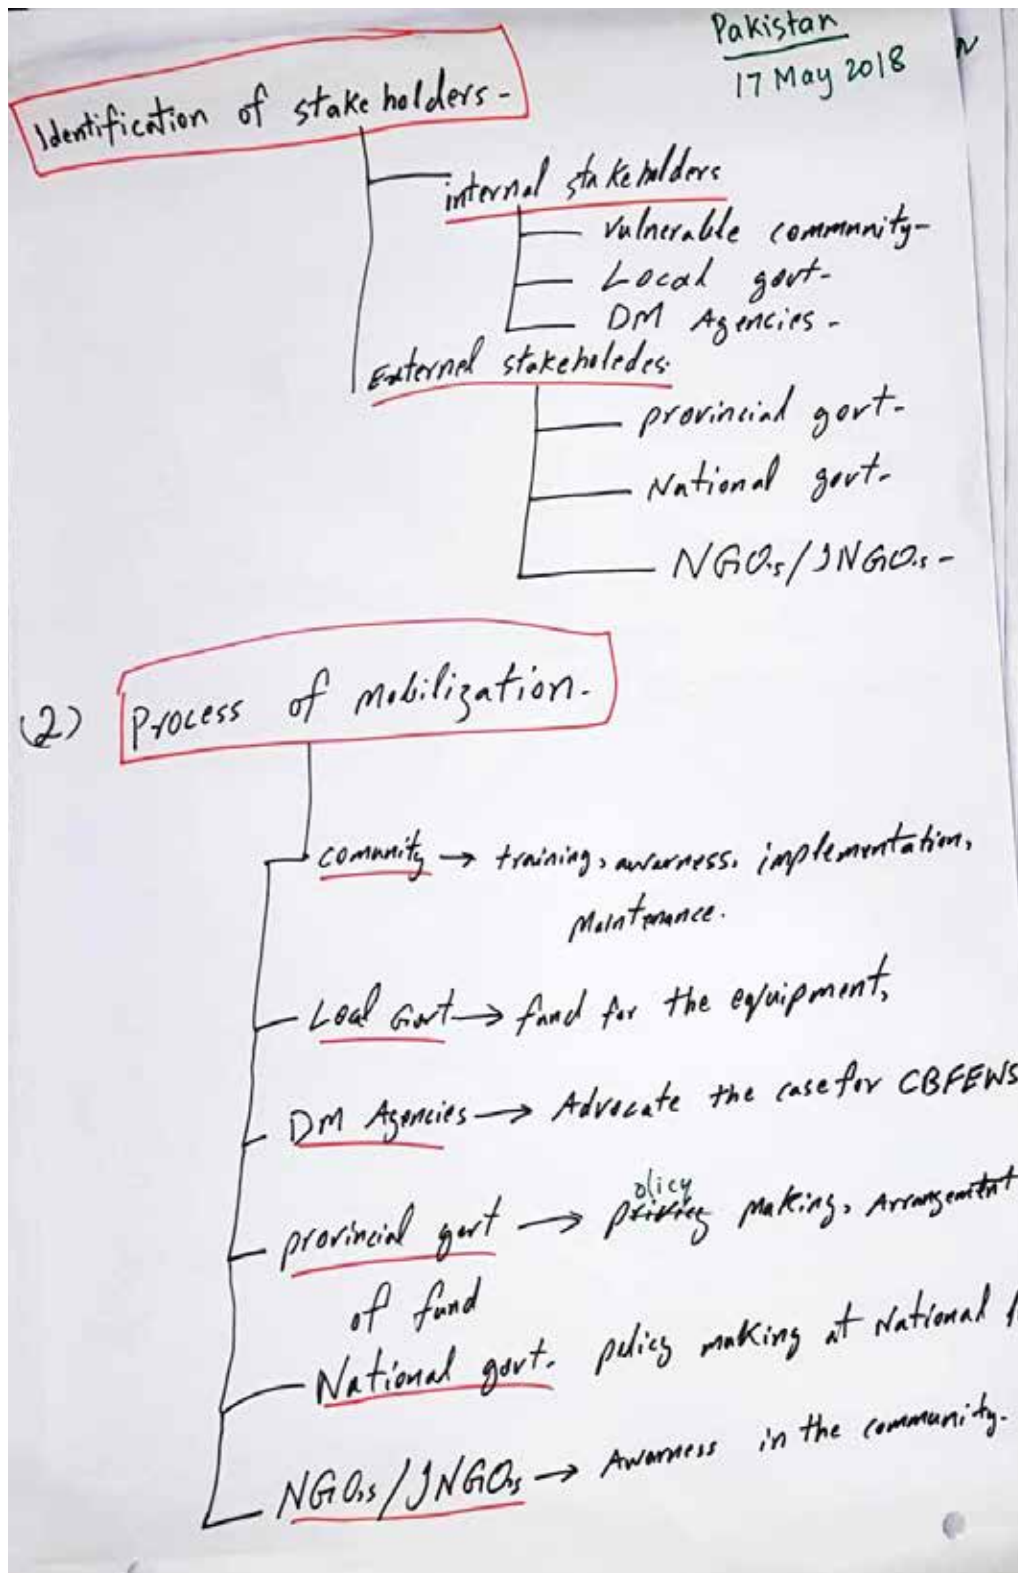 Pakistan
17 May 2018
Identification of stake holders-
internal stakeholders
vulnerable community-
Local govt-
DM Agencies-
External stakeholedes.
provincial govt-
National govt-
NGO,s/INGO,s-
(2) Process of mobilization.
comunity → training, awarness, implementation,
Maintenance.
Local Govt → fund for the equipment,
DM Agencies → Advocate the case for CBFEWS
olicy
provincial govt → p making, Arrangement
of fund
National govt. policy making at National
NGO,s/INGO,s → Awarness in the community.